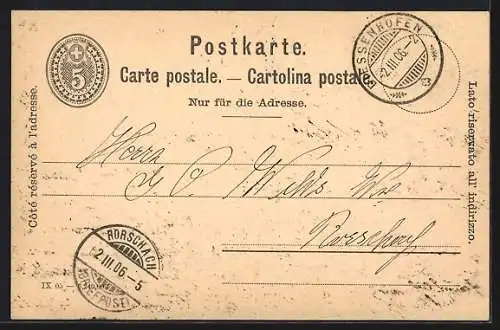 5
Postkarte.
Carte postale. — Cartolina postale.
Nur für die Adresse.
Côté réservé à l'adresse.
Lato riservato all' indirizzo.
2.III.06.
Herrn
Rorschach
RORSCHACH
2.III.06.-5
IX 05.